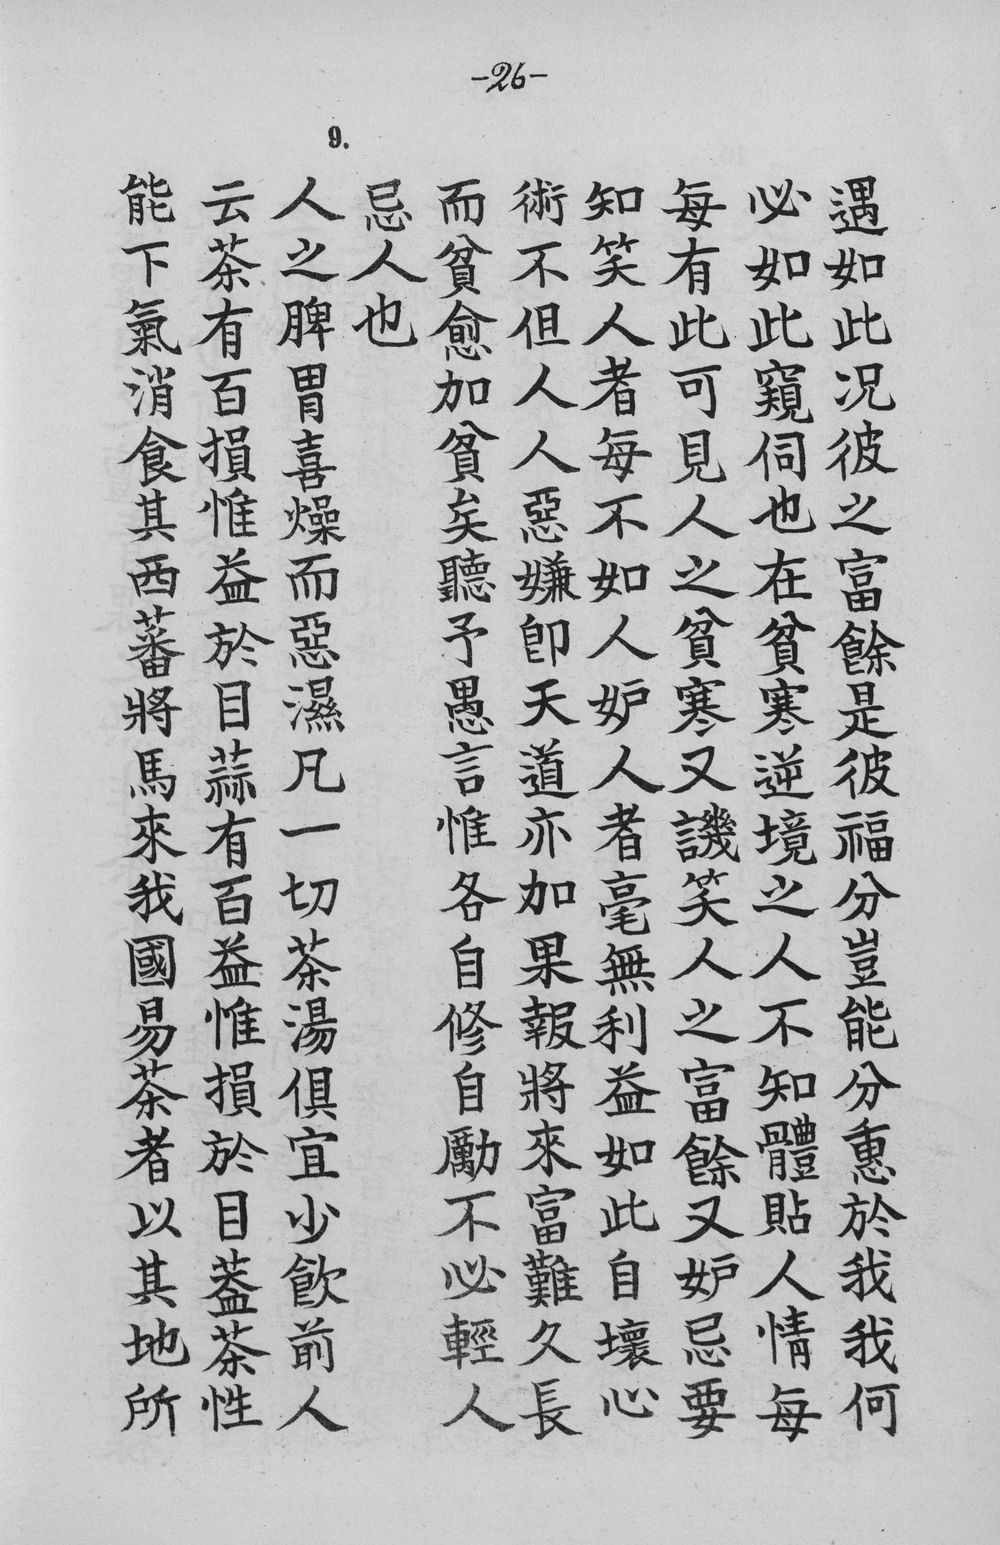 -26-
9.
遇如此况彼之富餘是彼福分豈能分惠於我我何
必如此窺伺也在貧寒逆境之人不知體貼人情每
每有此可見人之貧寒又譏笑人之富餘又妒忌要
知笑人者每不如人妒人者毫無利益如此自壞心
術不但人人惡嫌卽天道亦加果報將來富難久長
而貧愈加貧矣聽予愚言惟各自修自勵不必輕人
忌人也
人之脾胃喜燥而惡濕凡一切茶湯俱宜少飲前人
云茶有百損惟益於目蒜有百益惟損於目蓋茶性
能下氣消食其西蕃將馬來我國易茶者以其地所